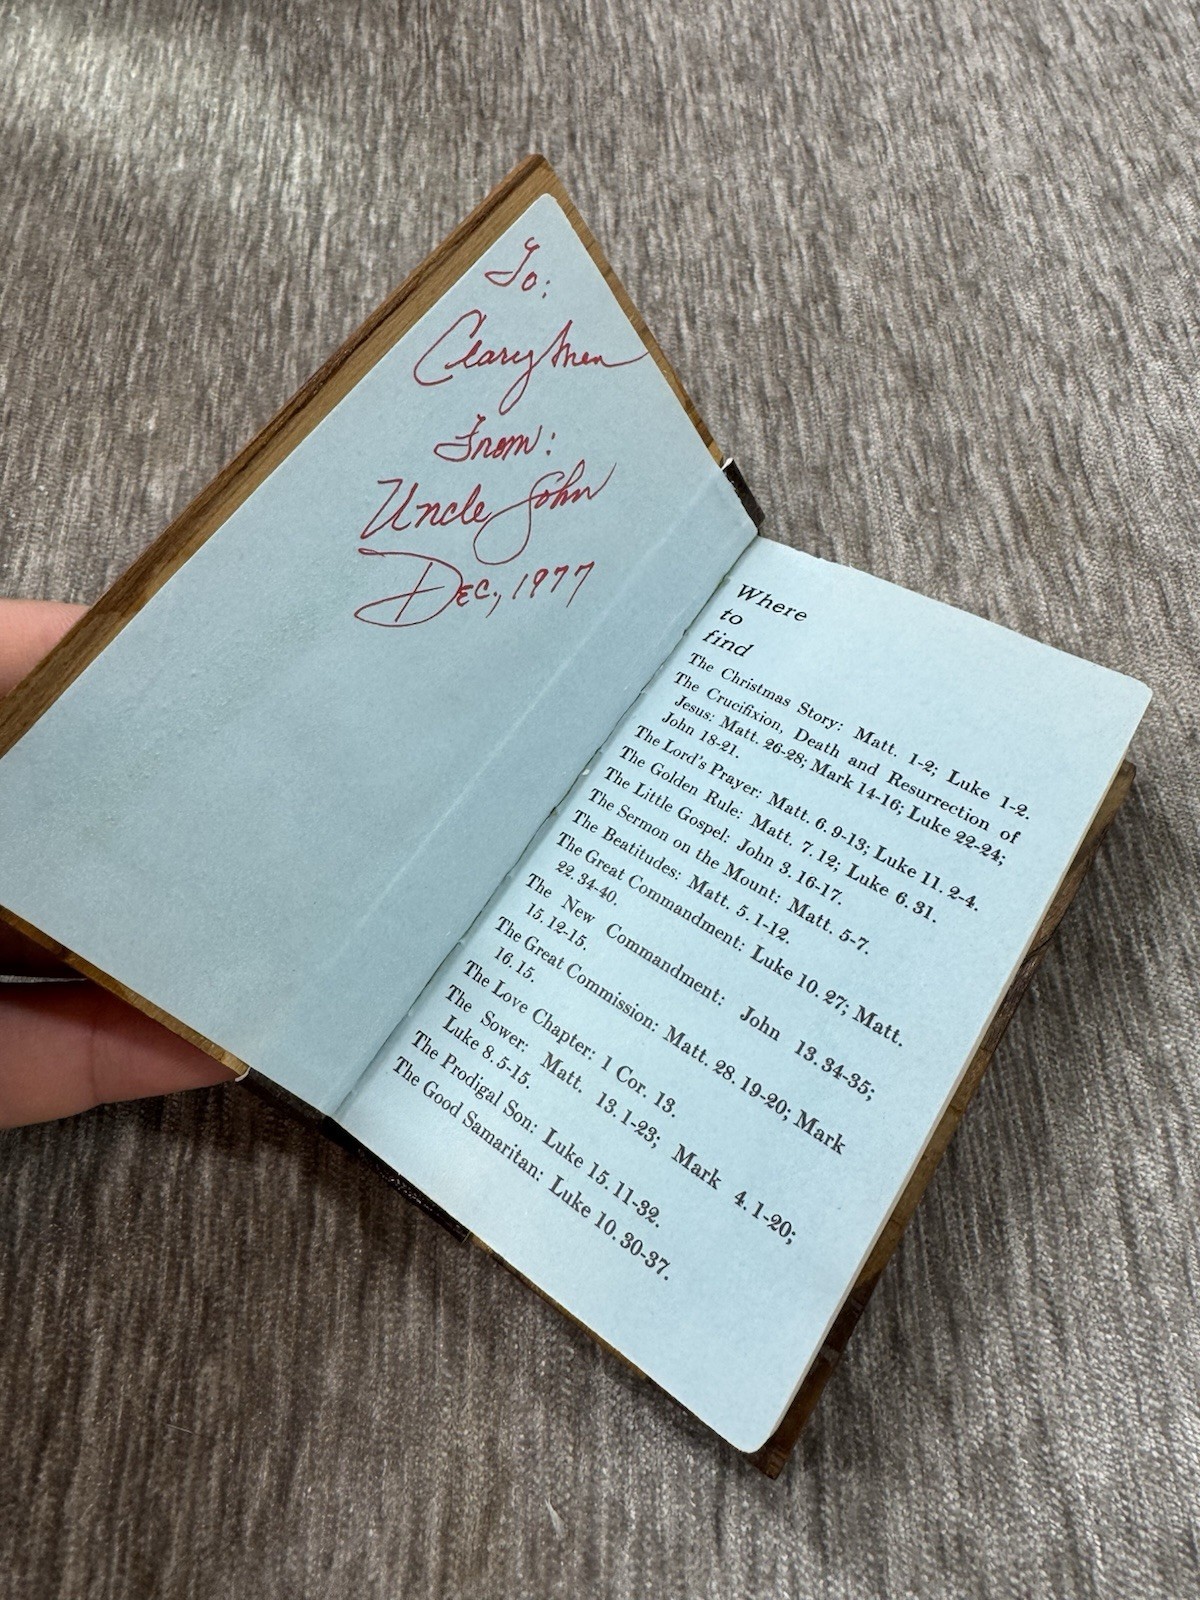 To:
From:
Uncle John
Dec., 1977
Where
to
find
The Christmas Story: Matt. 1-2; Luke 1-2.
The Crucifixion, Death and Resurrection of
Jesus: Matt. 26-28; Mark 14-16; Luke 22-24;
John 18-21.
The Lord's Prayer: Matt. 6. 9-13; Luke 11. 2-4.
The Golden Rule: Matt. 7. 12; Luke 6. 31.
The Little Gospel: John 3. 16-17.
The Sermon on the Mount: Matt. 5-7.
The Beatitudes: Matt. 5. 1-12.
The Great Commandment: Luke 10. 27; Matt.
22. 34-40.
The New Commandment: John 13. 34-35;
15. 12-15.
The Great Commission: Matt. 28. 19-20; Mark
16. 15.
The Love Chapter: 1 Cor. 13.
The Sower: Matt. 13. 1-23; Mark 4. 1-20;
Luke 8. 5-15.
The Prodigal Son: Luke 15. 11-32.
The Good Samaritan: Luke 10. 30-37.